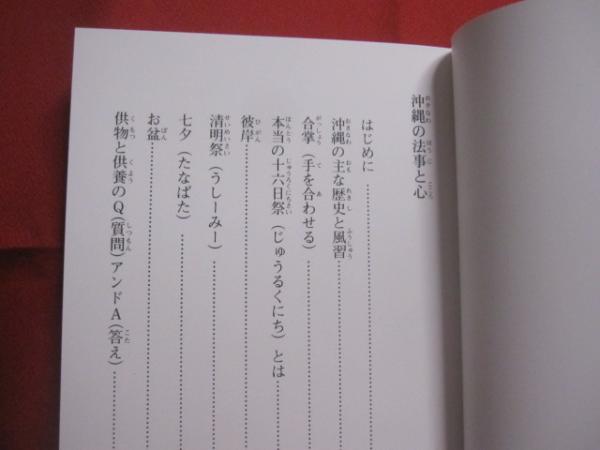 沖縄の法事と心
はじめに
沖縄の主な歴史と風習
合掌(手を合わせる)
本当の十六日祭(じゅうるくにち)とは
彼岸
清明祭(うしーみー)
七夕(たなばた)
お盆
供物と供養のQ(質問)アンドA(答え)